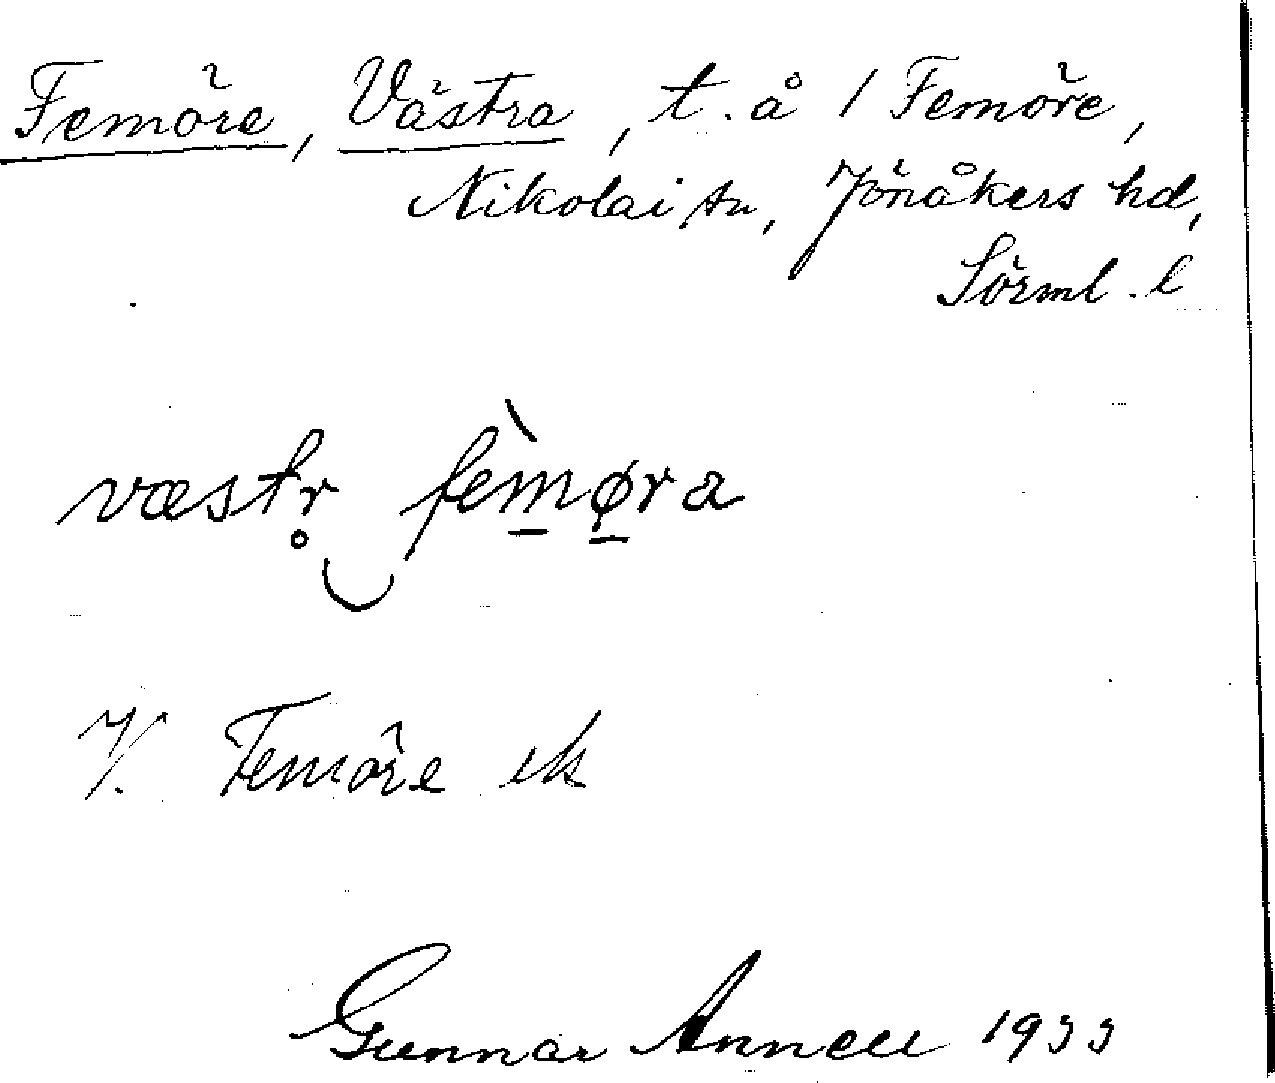 Femöre, Västra, t. å 1 Femöre,
Nikolai sn, Jönåkers hd,
Sörml. l
væstr̥‿fèmøra
V. Femöre ek
Gunnar Annell 1933